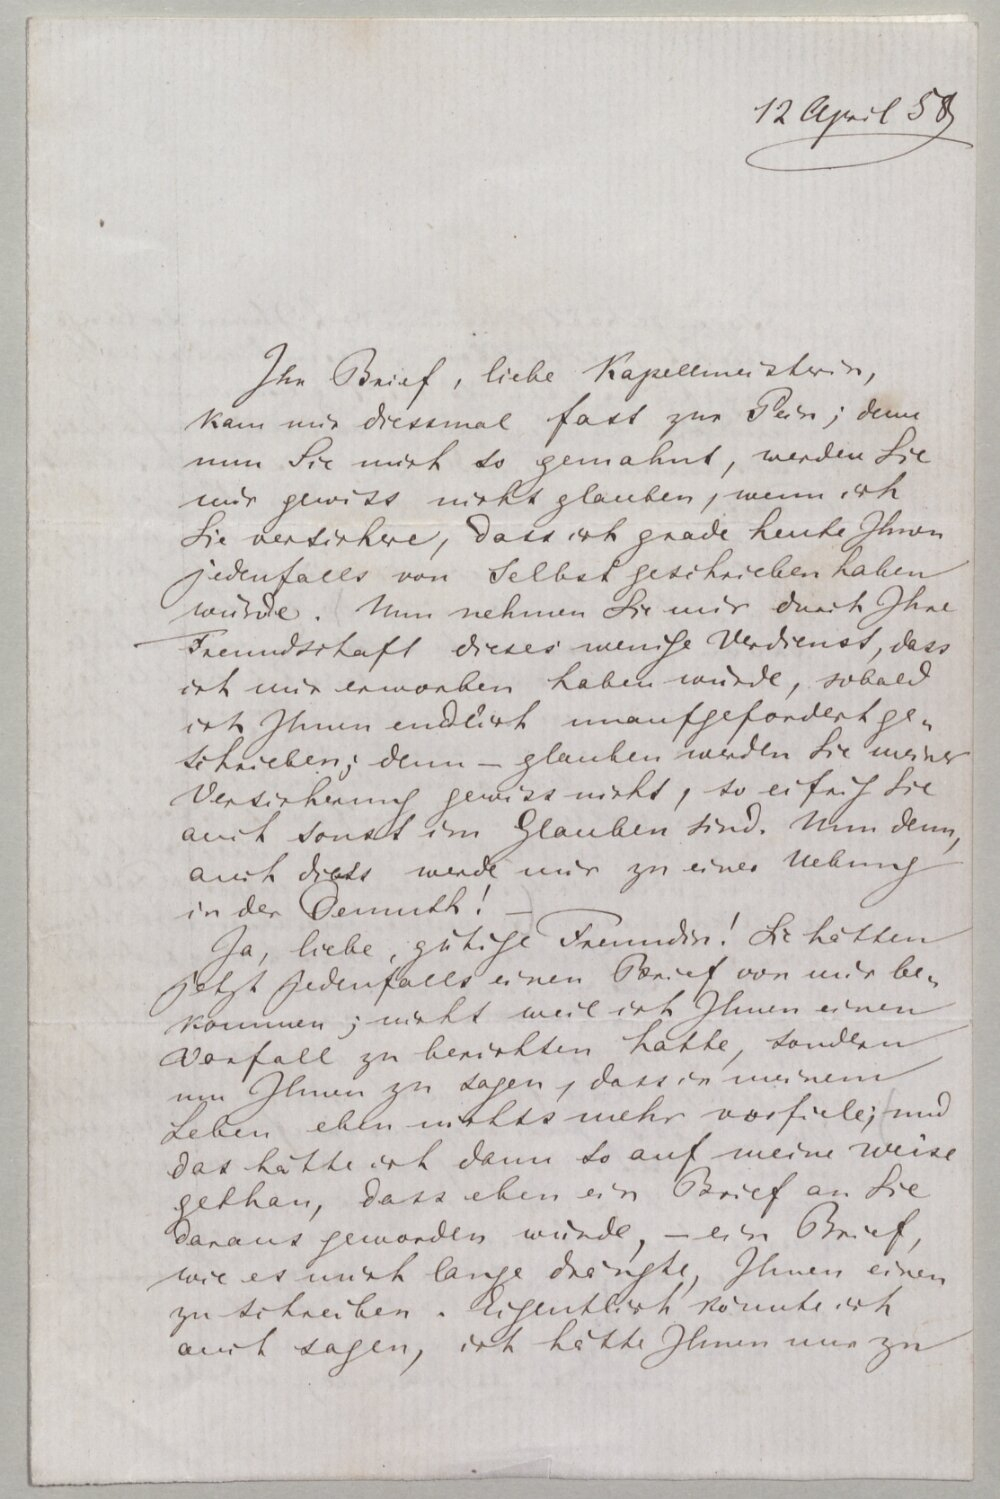 12 April 58
Ihr Brief, liebe Kapellmeisterin,
kam mir diessmal fast zur Pein; denn
nun Sie mich so gemahnt, werden Sie
mir gewiss nicht glauben, wenn ich
Sie versichere, dass ich grade heute Ihnen
jedenfalls von Selbst geschrieben haben
würde. Nun nehmen Sie mir durch Ihre
Freundschaft dieses wenige Verdienst, dass
ich mir erworben haben würde, sobald
ich Ihnen endlich unaufgefordert ge-
schrieben; denn — glauben werden Sie meiner
Versicherung gewiss nicht, so eifrig Sie
auch sonst im Glauben sind. Nun denn,
auch diess werde mir zu einer Uebung
in der Demuth! —
Ja, liebe, gütige Freundin! Sie hätten
jetzt jedenfalls einen Brief von mir be-
kommen; nicht weil ich Ihnen einen
Vorfall zu berichten hatte, sondern
um Ihnen zu sagen, dass in meinem
Leben eben nichts mehr vorfiele; und
das hätte ich dann so auf meine Weise
gethan, dass eben ein Brief an Sie
daraus geworden würde, — ein Brief,
wie es mich lange drängte, Ihnen einen
zu schreiben. Eigentlich könnte ich
auch sagen, ich hätte Ihnen nur zu